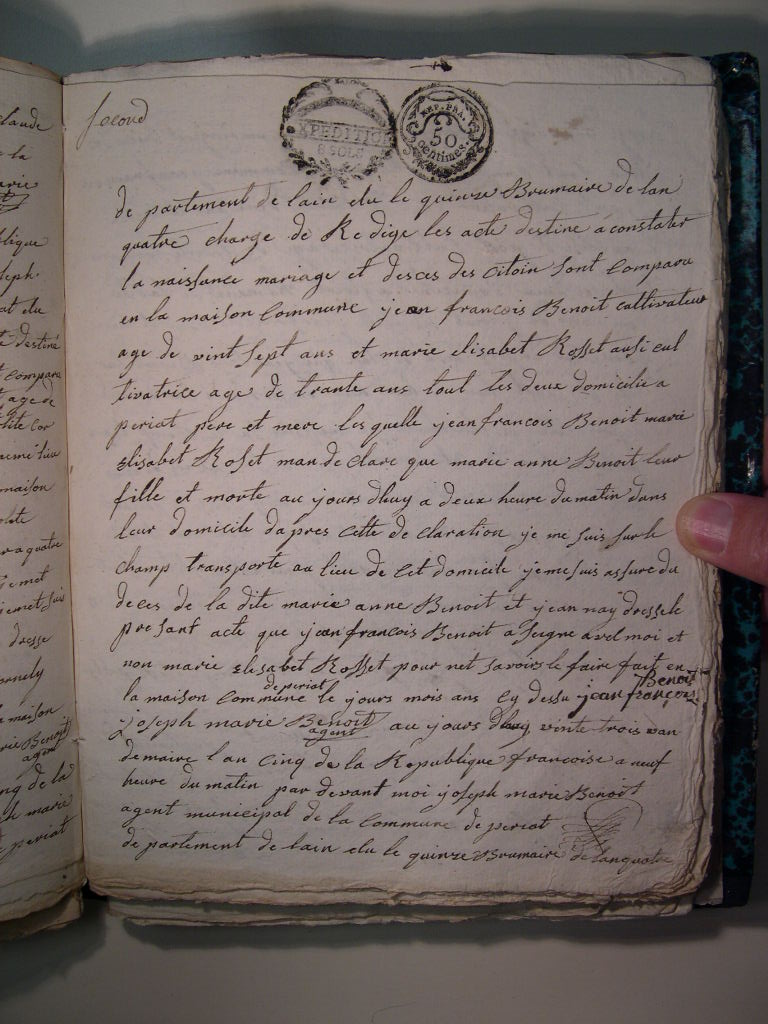 second
EXPEDITION
8 SOLS
REP. FRA.
50
centimes.
de partement de lain elu le quinze Brumaire de lan
quatre charge de Redige les acte destine a constater
la naissance mariage et desces des citoin sont Compara
en la maison Commune jean francois Benoit cultivateur
age de vint sept ans et marie elisabet Rosset ausi cul
tivatrice age de trante ans tout les deux domicilie a
periat pere et mere les quelle jean francois Benoit marie
Elisabet Roset man de clare que marie anne Benoit leur
fille et morte au jours dhuy a deux heure du matin dans
leur domicile dapres Cette de claration je me suis sur le
champ transporté au lieu de Cet domicile je me suis assure du
deces de la dite marie anne Benoit et jean nay dresse le
presant acte que jean francois Benoit a seigne avel moi et
non marie Elisabet Rosset pour net savoirs le faire fait en
la maison Commune de periat le jours mois ans Cy dessu jean françois Benoit
joseph marie Benoit agent au jours dhuy vinte trois van
demaire lan Cinq de la Republique francoise a neuf
heure du matin par devant moi joseph marie Benoit
agent municipal de la Commune de periat
de partement de lain elu le quinze Brumaire de lan quatre